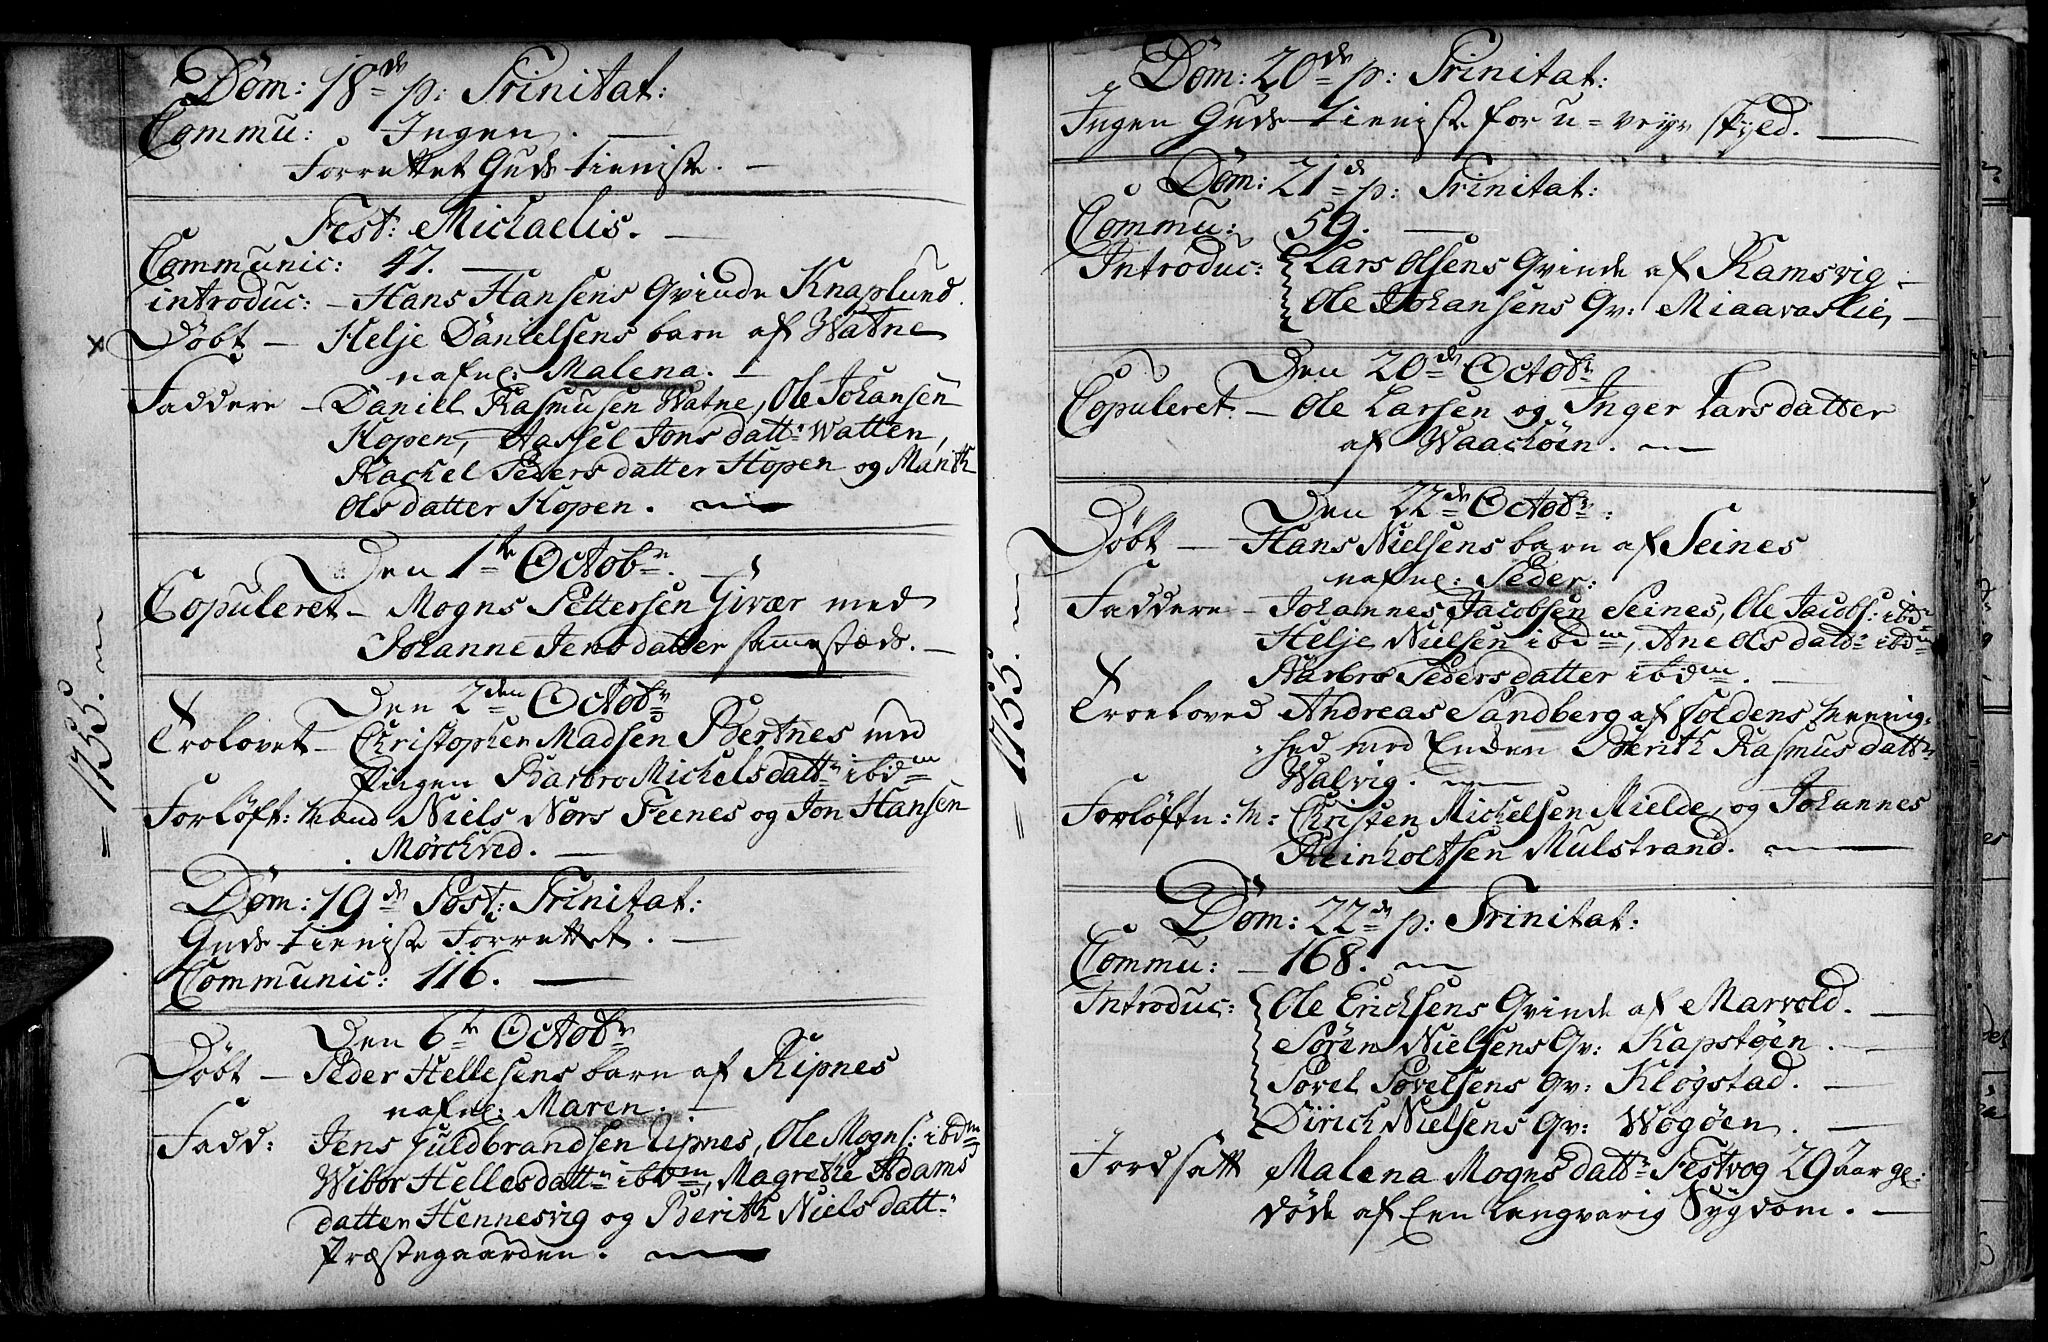 Dom: 18de p: Trinitat:
Commu: Ingen. —
Forrettet Guds tieniste. —
Fest: Michaelis. —
Communic: 47. —
introduc: — Hans Hansens Qvinde Knaplund.
x Døbt — Helje Danielsens barn af Watne
nafnl: Malena. —
Faddere — Daniel Rasmusen Watne, Ole Johansen
Hopen, Hassel Jons datt: Watten,
Rachel Peders datter Hopen og Marith
Ols datter Hopen. —
Den 1te Octobr
Copuleret — Mogns Pettersen Givær med
Johanne Jens datter sammestæds. —
= 1755. =
Den 2den Octobr
Trolovet — Christopher Madsen Bertnes med
Pigen Barbro Michels datt: ibdm
Forløft: Mænd Niels Nørs Feenes og Jon Hansen
Mørchved. —
Dom: 19de Post: Trinitat:
Guds tieniste Forrettet. —
Communic: 116. —
Den 6te Octobr
Døbt — Peder Hellesens barn af Ripnes
nafnl: Maren. —
Fadd: Jens Guldbrandsen Lipnes, Ole Mogns: ibdm
Wibor Helles datt: ibdm, Magrethe Adams
datter Hennesvig og Berith Niels datt:
Præstegaarden. —
Dom: 20de p: Trinitat:
Ingen Guds tieniste for u=veyr skyld. —
Dom: 21de p: Trinitat:
Commu: 59. —
Introduc: Lars Olsens Qvinde af Ramsvig —
Ole Johansens Qv: Miaavaslie, —
Den 20de Octobr
Copuleret — Ole Larsen og Inger Lars datter
af Waachøen. —
Den 22de Octobr:
x Døbt — Hans Nielsens barn af Seines
nafnl: Peder:
Faddere — Johannes Jacobsen Seines, Ole Jacobs: ibdm
Helje Nielsen ibdm, Ane Ols datt: ibdm
Barbro Peders datter ibdm. —
= 1755. =
Troeloved Andreas Sandberg af Foldens Meenig=
=hed med Enken Berith Rasmus datt:
Walvig. —
Forløftn: M: Christen Michelsen Mielde, og Johannes
Reinholtsen Mulstrand. —
Dom: 22de p: Trinitat:
Commu: — 168. —
Introduc: Ole Erichsens Qvinde af Marvold. —
Søren Nielsens Qv: Kapstøen. —
Povel Povelsens Qv: Kløgstad. —
Dirich Nielsens Qv: Wogøen. —
Jordsatt Malena Mogns datt: Festvog 29 aar gl:
døde af Een langvarig Sygdom. —